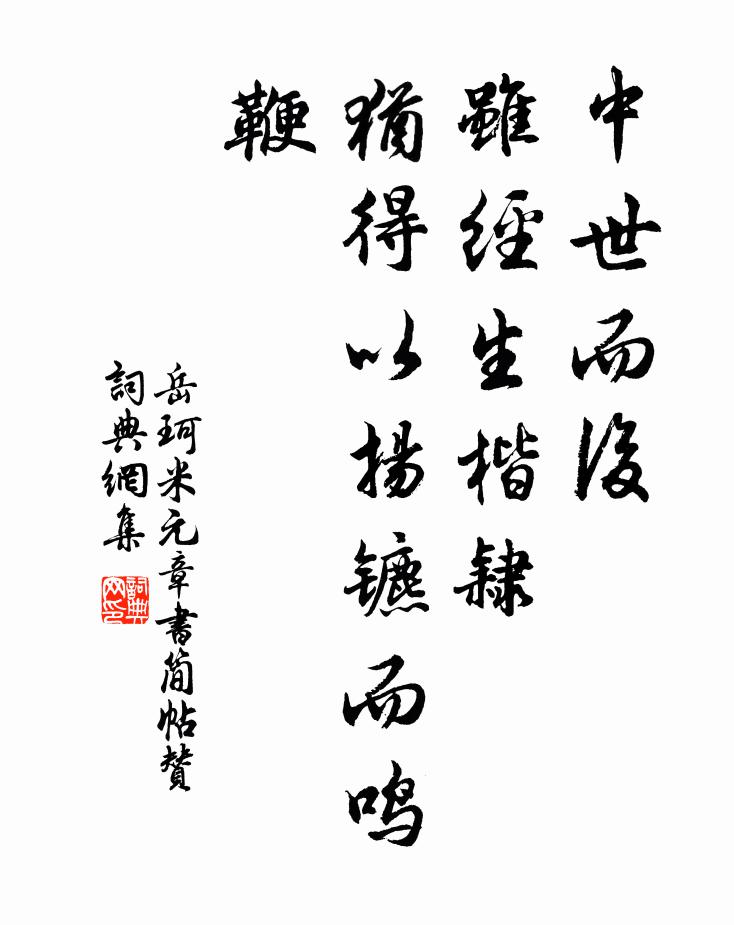 中世而後
雖經生楷隸
猶得以揚镳而鸣
鞭
岳珂米元章書简帖贊
詞典網集
詞典网印